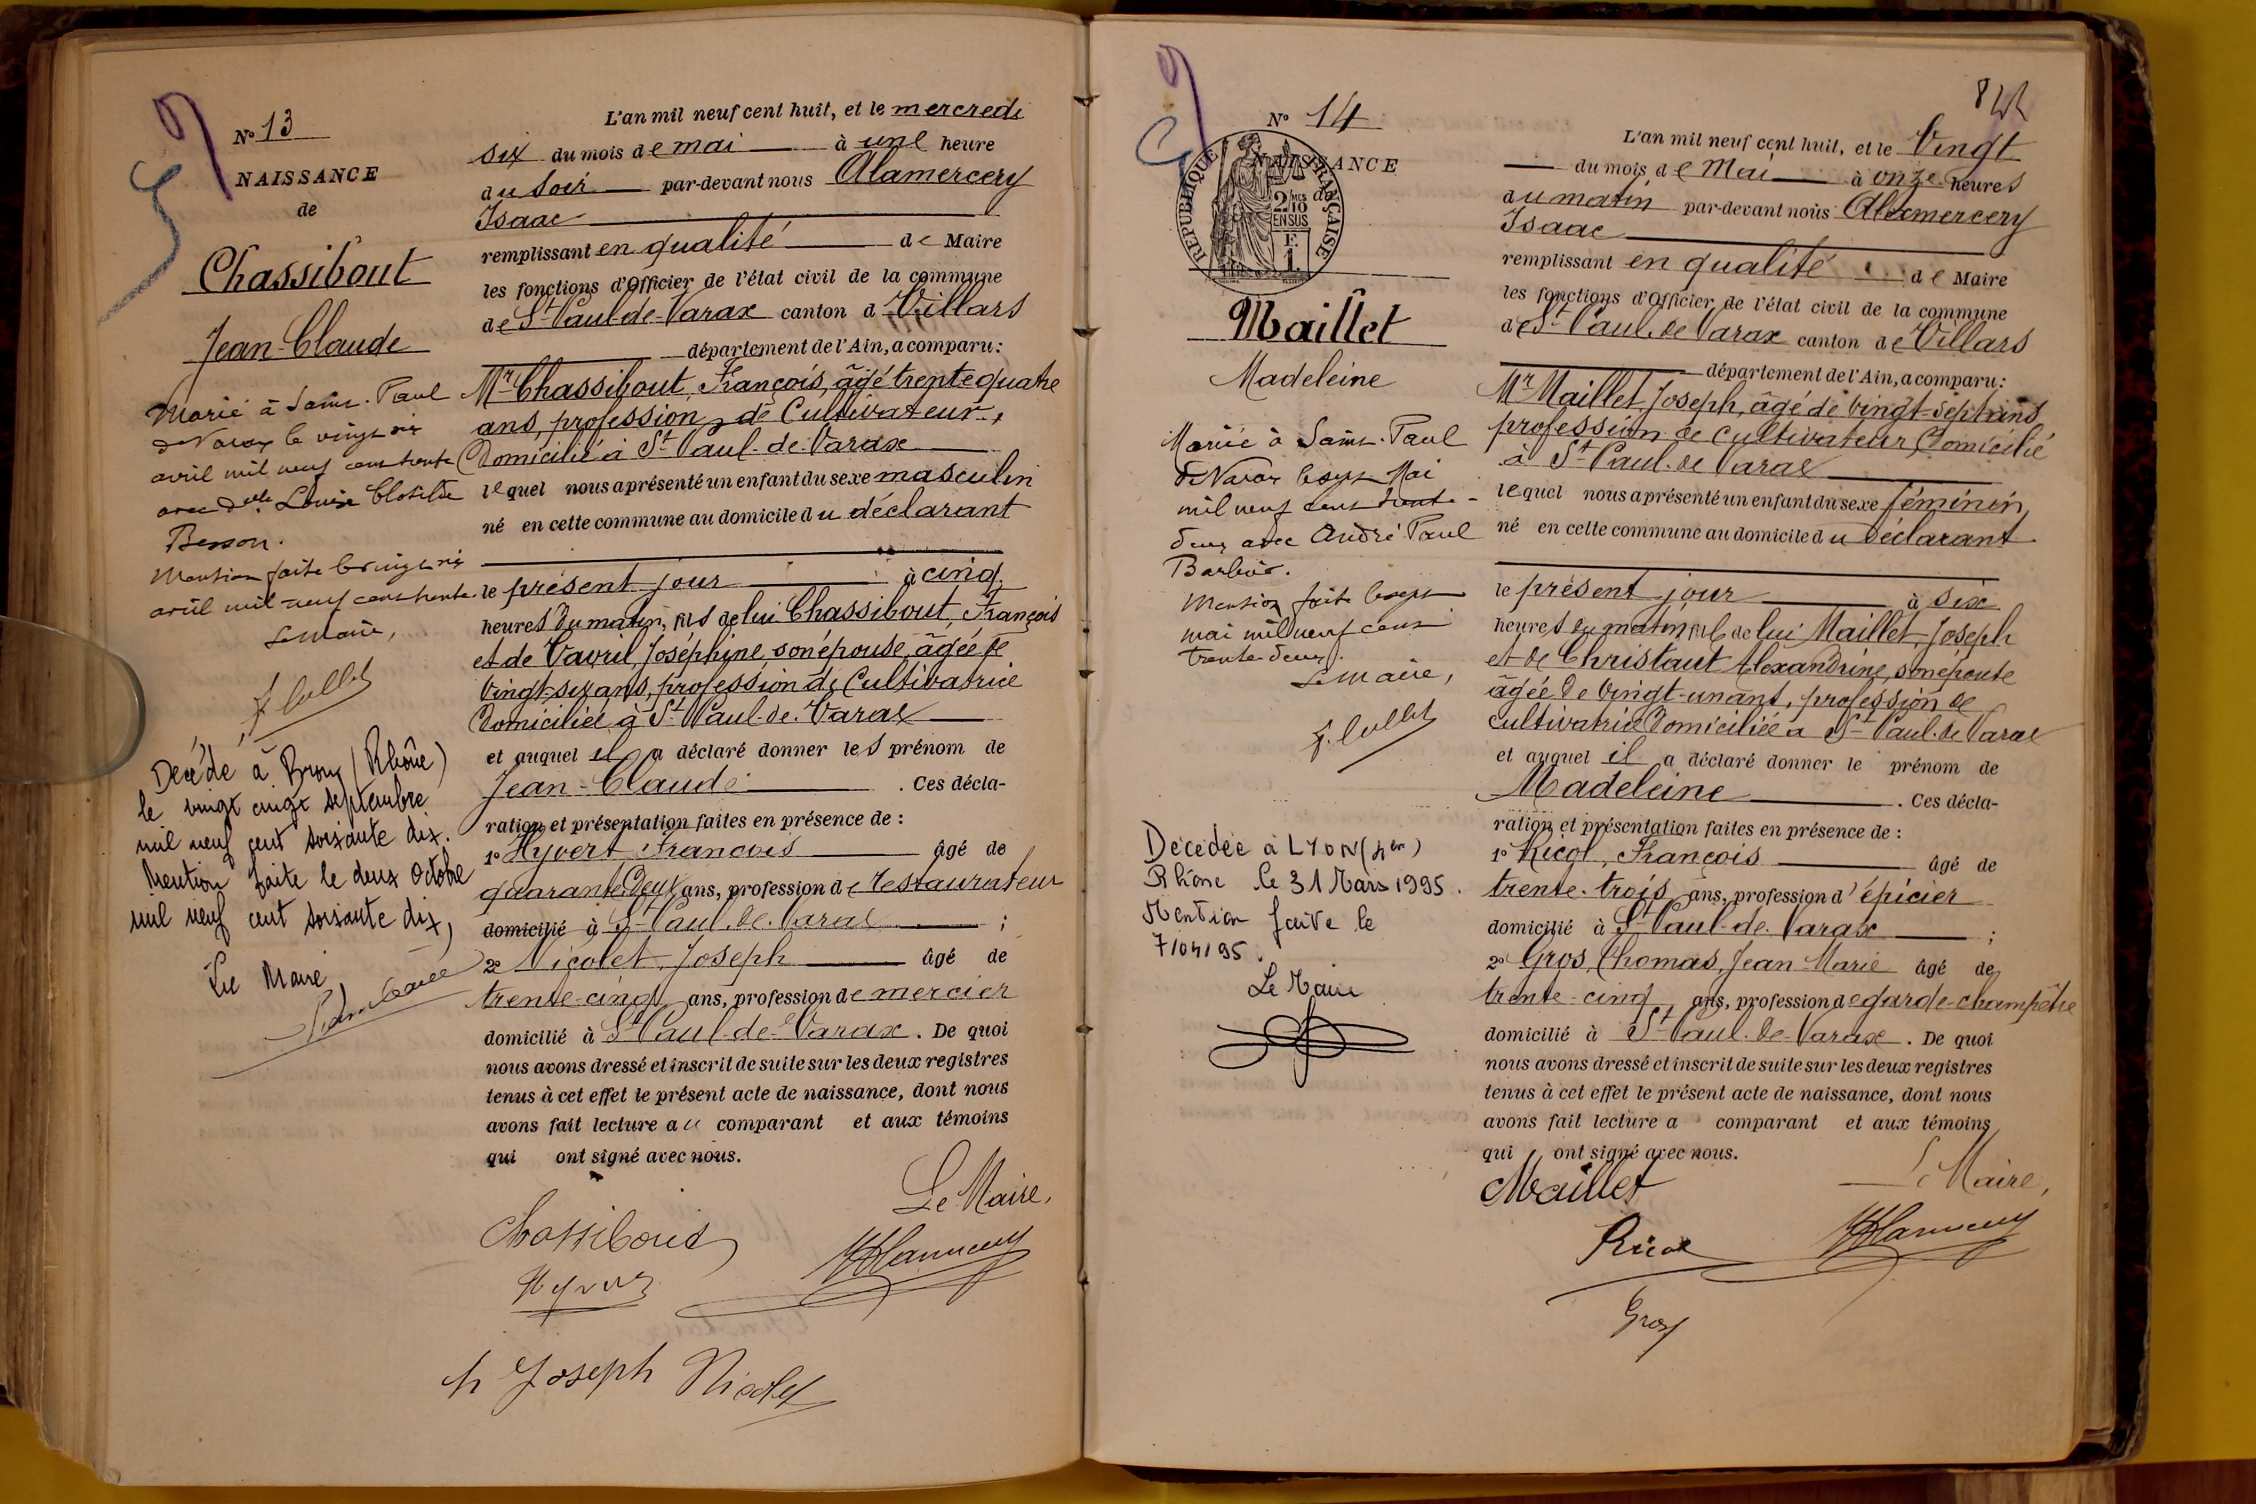 N° 13
NAISSANCE
de
Chassibout
Jean-Claude
Marié à Saint-Paul
de Varax le vingt six
avril mil neuf cent trente
avec Delle Louise Clotilde
Besson.
Mention faite le vingt six
avril mil neuf cent trente.
Le Maire,
Décédé à Bron (Rhône)
le vingt cinq septembre
mil neuf cent soixante dix.
Mention faite le deux octobre
mil neuf cent soixante dix,
Le Maire,
L'an mil neuf cent huit, et le mercredi
six du mois de mai à une heure
du soir par-devant nous Alamercery
Isaac
remplissant en qualité de Maire
les fonctions d'Officier de l'état civil de la commune
de St Paul-de-Varax canton d Villars
département de l'Ain, a comparu:
Mr Chassibout, François, âgé trente quatre
ans, profession de Cultivateur,
Domicilié à St Paul-de-Varax
lequel nous a présenté un enfant du sexe masculin
né en cette commune au domicile du déclarant
le présent jour à cinq
heures du matin, fils de lui Chassibout, François
et de Vavril Joséphine son épouse, âgée de
vingt-six ans, profession de Cultivatrice
Domiciliée à St Paul-de-Varax
et auquel il a déclaré donner les prénom de
Jean-Claude . Ces décla-
ration et présentation faites en présence de :
1° Hyvert François âgé de
quarante deux ans, profession de restaurateur
domicilié à St Paul-de-Varax ;
2° Nicolet, Joseph âgé de
trente-cinq ans, profession de mercier
domicilié à St Paul-de-Varax . De quoi
nous avons dressé et inscrit de suite sur les deux registres
tenus à cet effet le présent acte de naissance, dont nous
avons fait lecture au comparant et aux témoins
qui ont signé avec nous.
Le Maire,
Chassibout
Hyvert
Joseph Nicolet
N° 14
NAISSANCE
de
RÉPUBLIQUE FRANÇAISE
2/10 MES
EN SUS
F.
1.
Maillet
Madeleine
Mariée à Saint-Paul
de Varax le sept Mai
mil neuf cent trente-
deux avec André Paul
Mention faite le sept
mai mil neuf cent
trente deux.
Le Maire,
Décédée à LYON (4em)
Rhône le 31 Mars 1995.
Mention faite le
7/04/95.
Le Maire
L'an mil neuf cent huit, et le Vingt
du mois de Mai à onze heures
du matin par-devant nous Alamercery
Isaac
remplissant en qualité de Maire
les fonctions d'Officier de l'état civil de la commune
de St Paul-de-Varax canton de Villars
département de l'Ain, a comparu:
Mr Maillet Joseph, âgé de vingt-sept ans
profession de cultivateur Domicilié
à St Paul-de-Varax
lequel nous a présenté un enfant du sexe féminin
né en cette commune au domicile du Déclarant
le présent jour à six
heures du matin, fille de lui Maillet, Joseph
et de Christaut Alexandrine, son épouse
âgée de vingt-un ans, profession de
cultivatrice Domiciliée à St Paul-de-Varax
et auquel il a déclaré donner le prénom de
Madeleine . Ces décla-
ration et présentation faites en présence de :
1° Ricol, François âgé de
trente-trois ans, profession d'épicier
domicilié à St Paul-de-Varax ;
2° Gros, Thomas, Jean-Marie âgé de
trente-cinq ans, profession de garde-champêtre
domicilié à St Paul-de-Varax . De quoi
nous avons dressé et inscrit de suite sur les deux registres
tenus à cet effet le présent acte de naissance, dont nous
avons fait lecture a comparant et aux témoins
qui ont signé avec nous.
Maillet
Le Maire,
Ricol
Gros